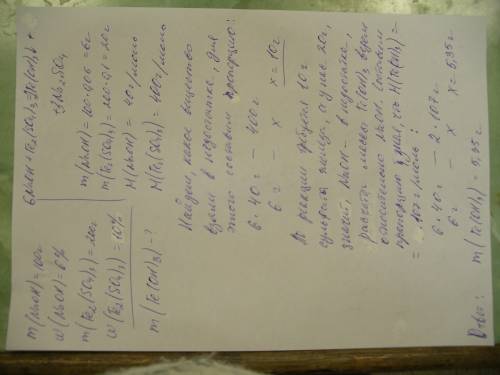 m(NaOH) = 100г
w(NaOH) = 6%
m(Fe₂(SO₄)₃) = 200г
w(Fe₂(SO₄)₃) = 10%
m(Fe(OH)₃) - ?
6NaOH + Fe₂(SO₄)₃ = 2Fe(OH)₃↓ +
+3Na₂SO₄
m(NaOH) = 100·0,06 = 6г
m(Fe₂(SO₄)₃) = 200·0,1 = 20г
M(NaOH) = 40г/моль
M(Fe₂(SO₄)₃) = 400г/моль
Найдем, какое вещество
взяли в недостатке, для
этого составим пропорцию:
6·40г — 400г
6г — x x = 10г
В реакции требуется 10г
сульфата железа, а у нас 20г,
значит, NaOH - в недостатке,
расчёт массы Fe(OH)₃ ведем
относительно NaOH. Составим
пропорцию, зная, что M(Fe(OH)₃) =
= 107г/моль:
6·40г — 2·107г
6г — x x = 5,35г
Ответ: m(Fe(OH)₃) = 5,35г